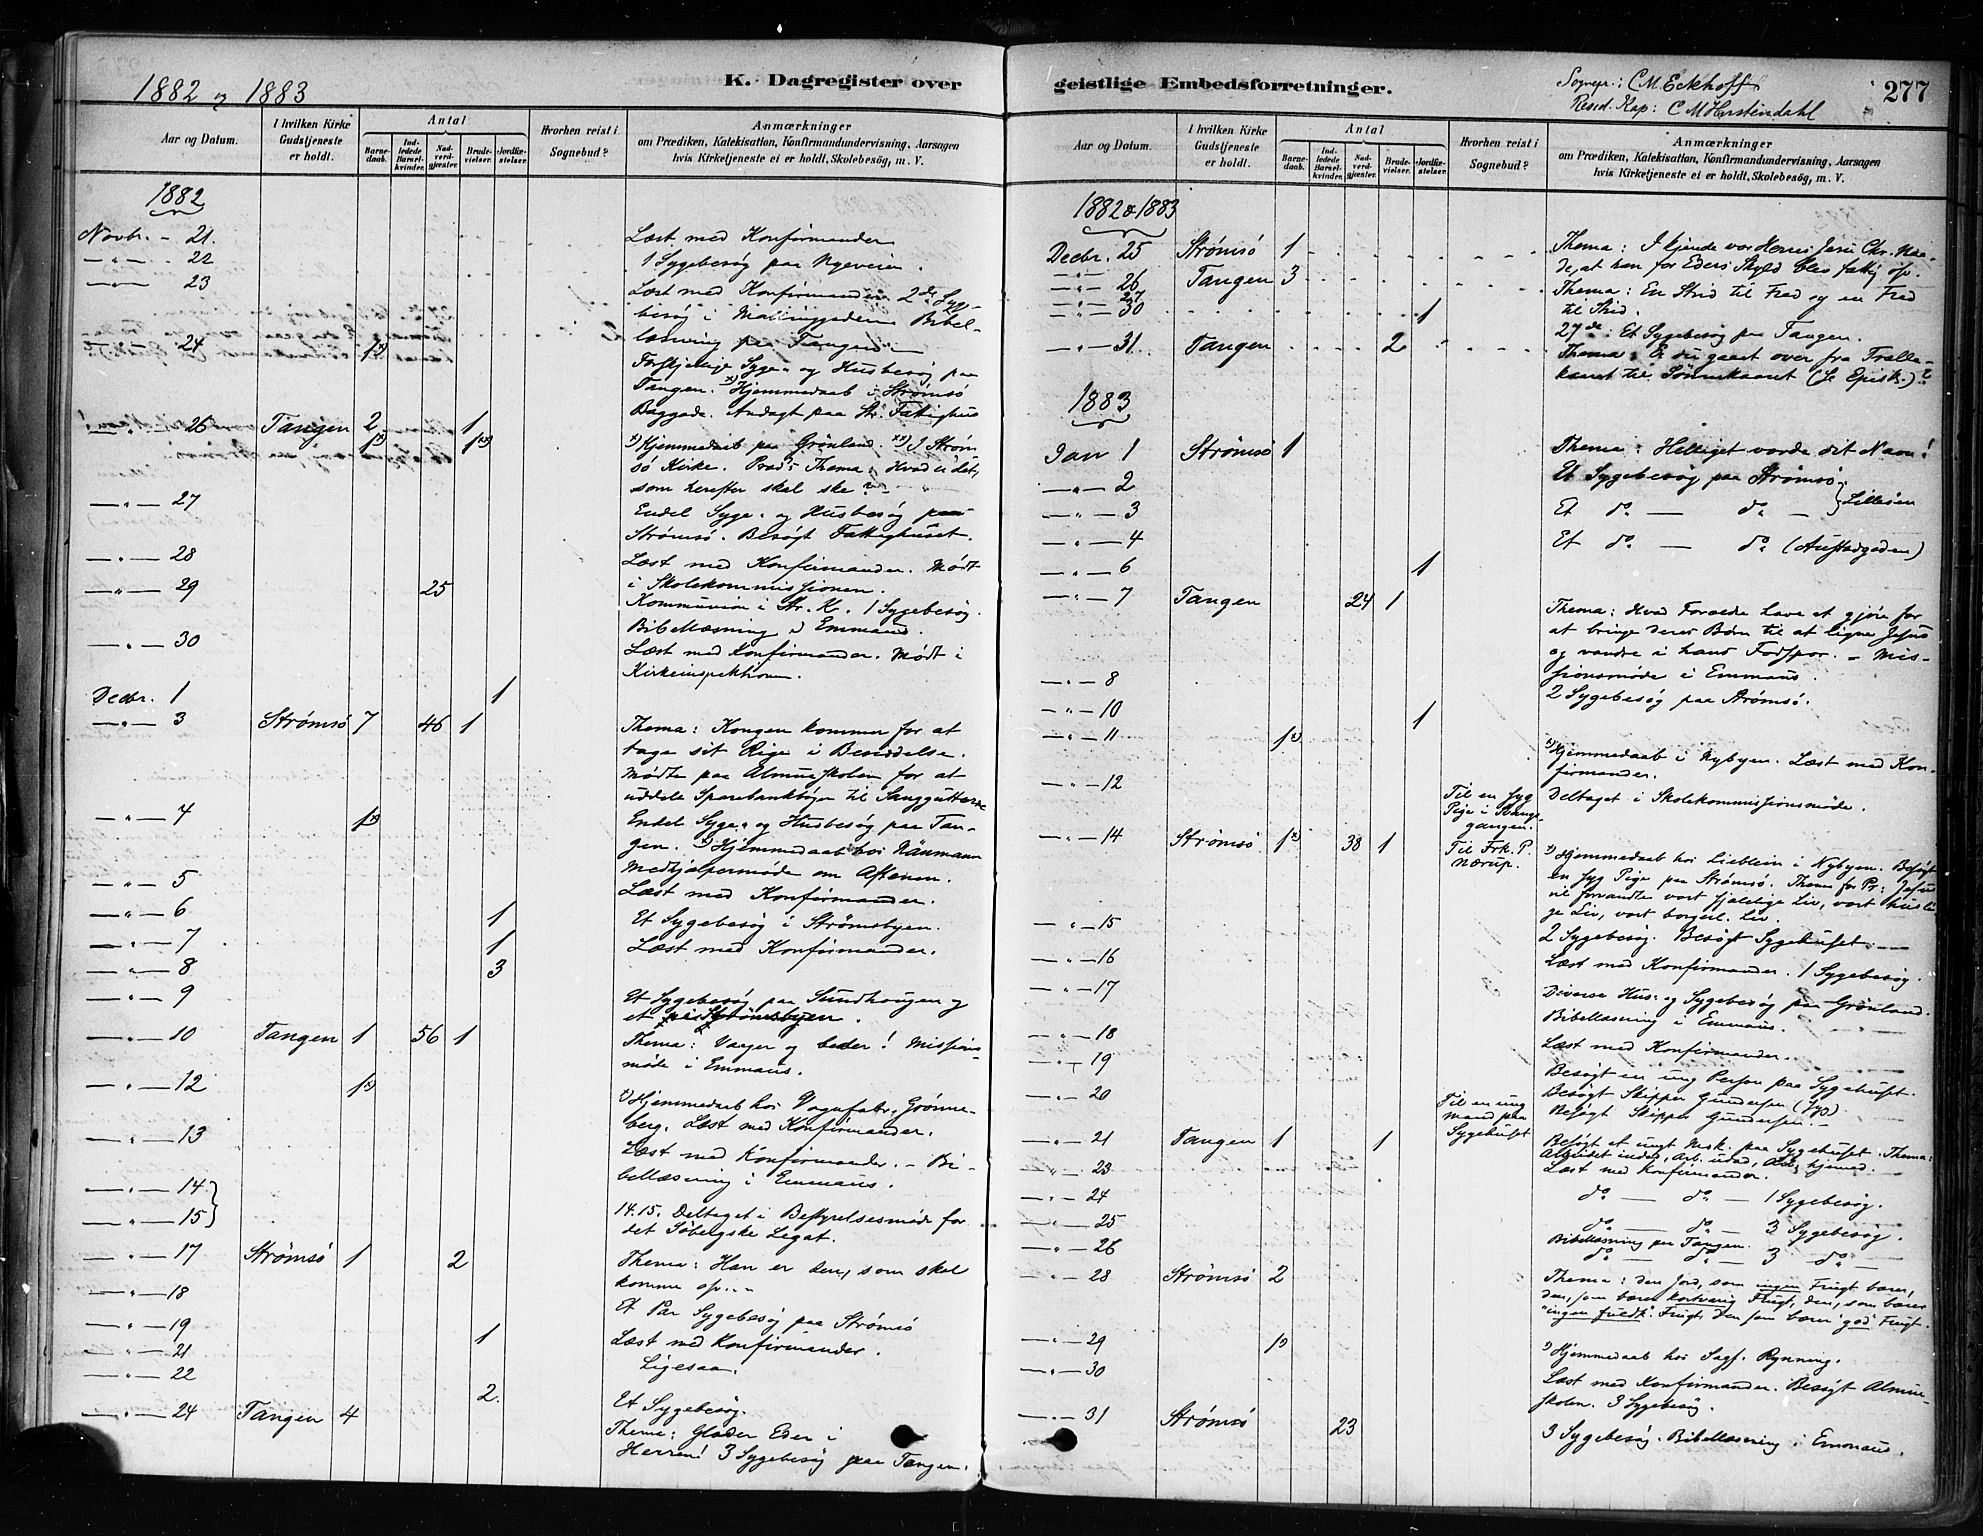 1882 og 1883
K. Dagregister over
Aar og Datum.
I hvilken Kirke Gudstjeneste er holdt.
Antal
Barnedaab.
Indledede Barselkvinder.
Nadverdgjæster.
Brudevielser.
Jordfæstelser.
Hvorhen reist i Sognebud?
Anmærkninger
om Prædiken, Katekisation, Konfirmandundervisning, Aarsagen
hvis Kirketjeneste ei er holdt, Skolebesøg, m. V.
1882
Novbr. - 21. Læst med Konfirmander
22 1 Sygebesøg paa Nyeveien.
23 Læst med Konfirmander. 2de Syge-
besøg i Bibel-
læsning paa Tangen
24 1x)
Forskjellige Syge- og Husbesøg paa
Tangen. x) Hjemmedaab i Strømsø
Baggade. Andagt paa Str. Fattighus
26 Tangen 2 1
1x) 1xx) x) Hjemmedaab paa Grønland xx) I Strøm
sø Kirke. Præd: Thema: Hvad er det,
som herefter skal ske?
27 Endel Syge- og Husbesøg paa
Strømsø. Besøgt Fattighuset.
28 Læst med Konfirmander. Mødt
i Skolekommissionen.
29 25 Kommunion i Str. K. 1 Sygebesøg.
Bibellæsning i Emmaus.
30 Læst med Konfirmander. Mødt i
Kirkeinspektionen.
Decbr. 1 1
3 Strømsø 7 46 1 Thema: Kongen kommer for at
tage sit Rige i Besiddelse.
Mødte paa Almueskolen for at
uddele Sparebankbøger til Sanggutterne
4 1x) Endel Syge- og Husbesøg paa Tan-
gen. x) Hjemmedaab hos Naumann
Medhjælpermøde om Aftenen.
5 Læst med Konfirmander.
6 1 Et Sygebesøg i Strømsbyen.
7 1 Læst med Konfirmander.
8 3
9 Et Sygebesøg paa Sundhougen og
et paa Strømsbyen.
10 Tangen 1 56 1 Thema: Vaager og beder! Missions-
møde i Emmaus.
12 1x) x) Hjemmedaab hos Vognfabr. Grønne-
berg. Læst med Konfirmander.
13 Læst med Konfirmander. - Bi-
bellæsning i Emmaus.
14
15 14.15. Deltaget i Bestyrelsesmøde for
det Søbergske Legat.
17 Strømsø 1 2 Thema: Han er den, som skal
komme op...
18 Et Par Sygebesøg paa Strømsø
19 1 Læst med Konfirmander.
21 Ligesaa.
22 2.
Et Sygebesøg.
24 Tangen 4 Thema: Glæder Eder i
Herren! 3 Sygebesøg paa Tangen.
geistlige Embedsforretninger.
Sognepr: C M Eckhoff
Resid. Kap: C M Herstendahl
277
Aar og Datum.
I hvilken Kirke Gudstjeneste er holdt.
Antal
Barnedaab.
Indledede Barselkvinder.
Nadverdgjæster.
Brudevielser.
Jordfæstelser.
Hvorhen reist i Sognebud?
Anmærkninger
om Prædiken, Katekisation, Konfirmandundervisning, Aarsagen
hvis Kirketjeneste ei er holdt, Skolebesøg, m. V.
1882 & 1883
Decbr. 25 Strømsø 1 Thema: I kjende vor Herres Jesu Chr. Naa-
de, at han for Eders Skyld blev fattig op.
26 Tangen 3 Thema: En Strid til Fred og en Fred
til Strid.
27
30 1 27de: Et Sygebesøg paa Tangen.
31 Tangen 2 Thema: Er du gaaet over fra Trælle-
kaaret til Sønnekaaret (Se Epist.)?
1883
Jan 1 Strømsø 1 Thema: Helliget vorde dit Navn!
2 Et Sygebesøg paa Strømsø
3 Et do — do — } Lilleøen
4 Et do — do (Austadgaden)
6 1
7 Tangen 24 1 Thema: Hvad Foræde have at gjøre for
at bringe deres Børn til at ligne Jesus
og vandre i hans Fodspor. - Mis-
sionsmøde i Emmaus.
8 2 Sygebesøg paa Strømsø.
10 1
11 1x) x) Hjemmedaab i Nybyen. Læst med Kon-
firmander.
12 Til en syg Pige i gangen. Deltaget i Skolekommissionsmøde.
14 Strømsø 1x) 38 1 Til Frk. P. Nærup. x) Hjemmedaab hos Lieblein i Nybyen. Besøgt
en syg Pige paa Strømsø. Thema for Pr: Jesus
vil forvandle vort sjælelige Liv, vort husli-
ge Liv, vort borgerl. Liv.
15 2 Sygebesøg. Besøgt Sygehuset.
16 Læst med Konfirmander. 1 Sygebesøg.
17 Diverse Hus- og Sygebesøg paa Grønland.
Bibellæsning i Emmaus.
18 Læst med Konfirmander.
19 Besøgt en ung Person paa Sygehuset.
20 Besøgt Skipper Gundersen (syg)
Til en ung mand paa Sygehuset Besøgt Skipper Gundersen.
21 Tangen 1 1 Besøgt et ungt Msk. paa Sygehuset. Thema:
Arbeidet indad, Arb. udad, Arb. hjemad.
23 Læst med Konfirmander.
24 do — do — 1 Sygebesøg.
25 do — do — 3 Sygebesøg.
Bibellæsning paa Tangen.
26 do — do — 3 do —
28 Strømsø 2 Thema: den Jord, som ingen Frugt bærer,
den, som bærer kortvarig Frugt, den, som bærer
"ingen fuldk." Frugt, den som bærer god Frugt.
29 1x) x) Hjemmedaab hos Sagf. Rynning.
30 Læst med Konfirmander. Besøgt Almue-
skolen. 3 Sygebesøg.
31 Strømsø 23 3 Sygebesøg. Bibellæsning i Emmaus.